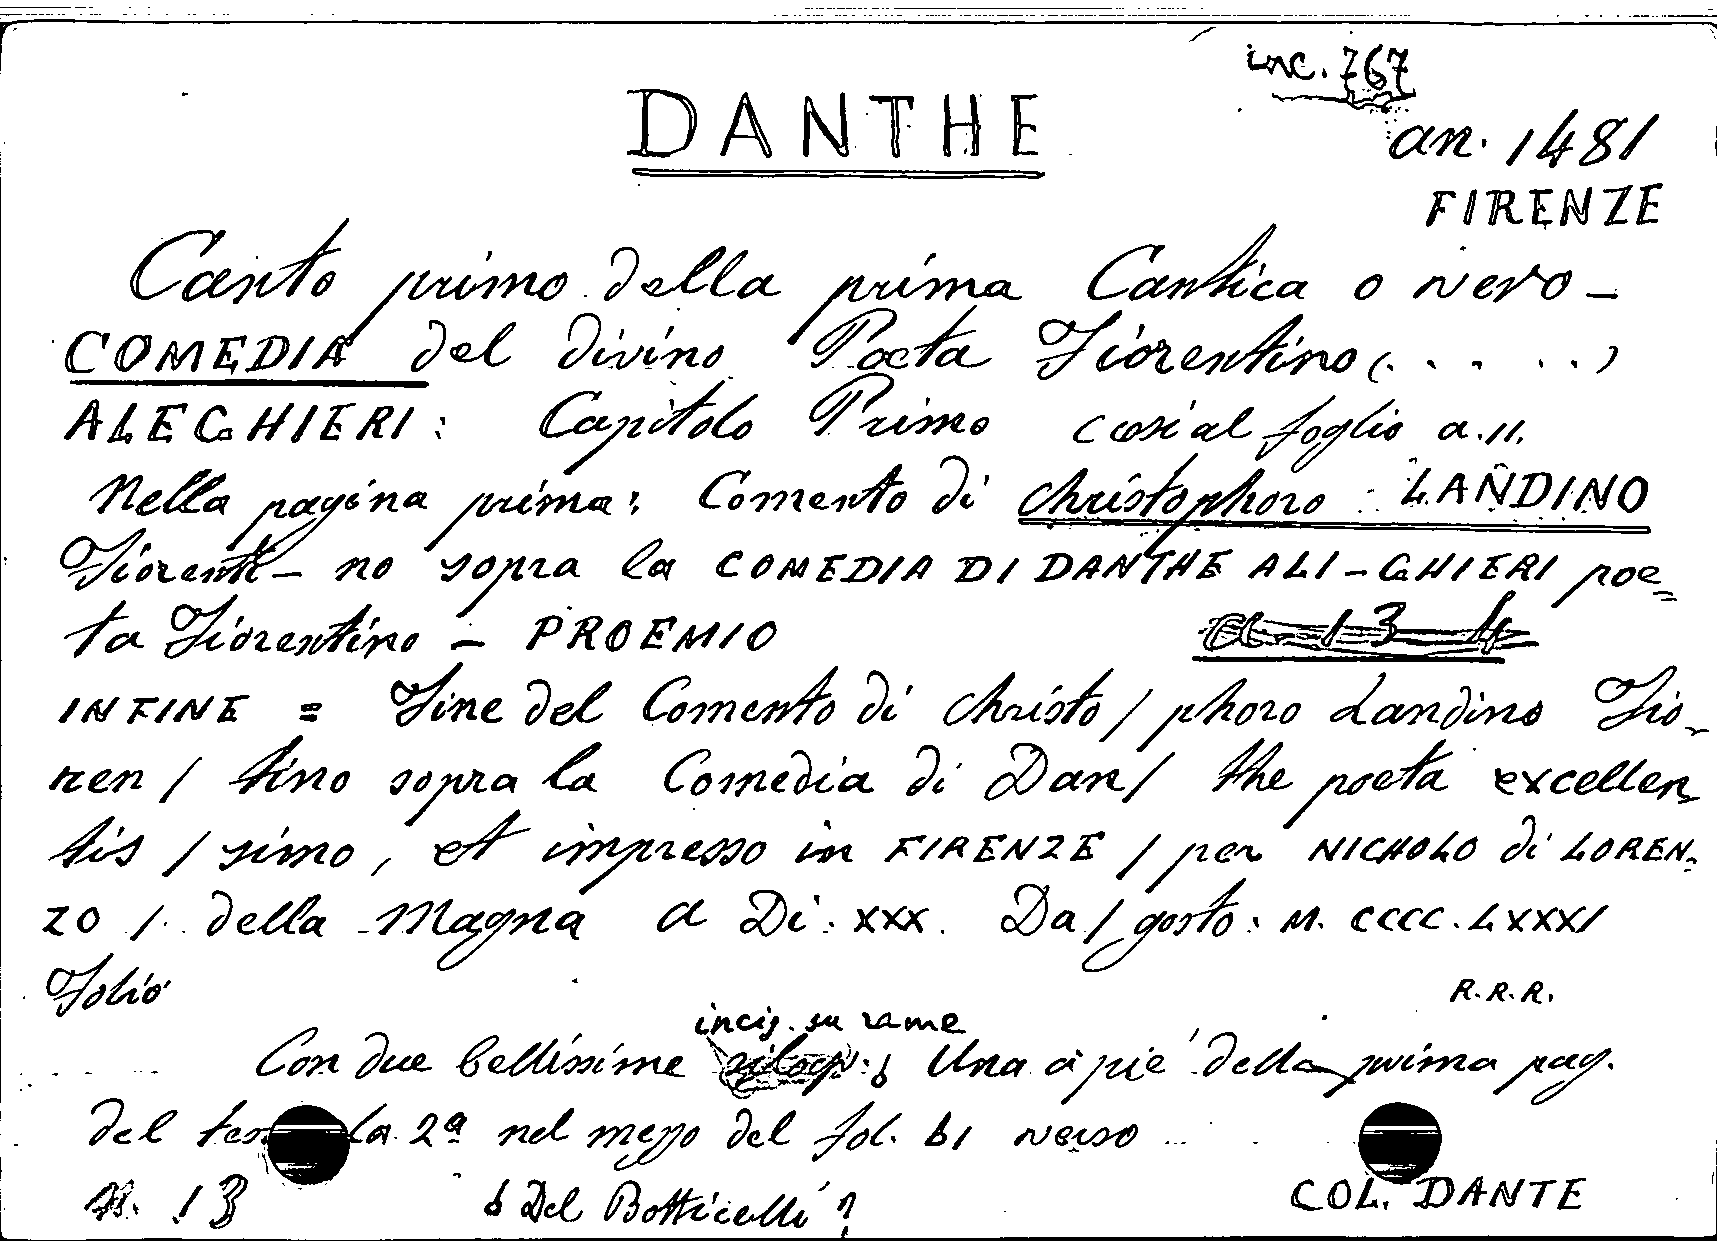 inc. 767
DANTHE
an. 1481
FIRENZE
Canto primo della prima Cantica o vero -
COMEDIA del divino Poeta Fiorentino (. . . . . .)
ALEGHIERI: Capitolo Primo cosi al foglio a.11.
Nella pagina prima: Comento di Christophoro LANDINO
Fiorenti - no sopra la COMEDIA DI DANTHE ALI - GHIERI poe=
ta Fiorentino - PROEMIO
INFINE = Fine del Comento di Christo / phoro Landino Fio-
ren / tino sopra la Comedia di Dan / the poeta excellen
tis / simo, et impresso in FIRENZE / per NICHOLO di LOREN-
ZO / della Magna a Di. XXX. Da / gosto: M. CCCC. LXXXI
Folio R.R.R.
incis. su rame
Con due bellissime silogr: Una a pie' della prima pag.
del la 2ª nel mezzo del fol. b1 verso
N. 13 Del Botticelli ? COL. DANTE